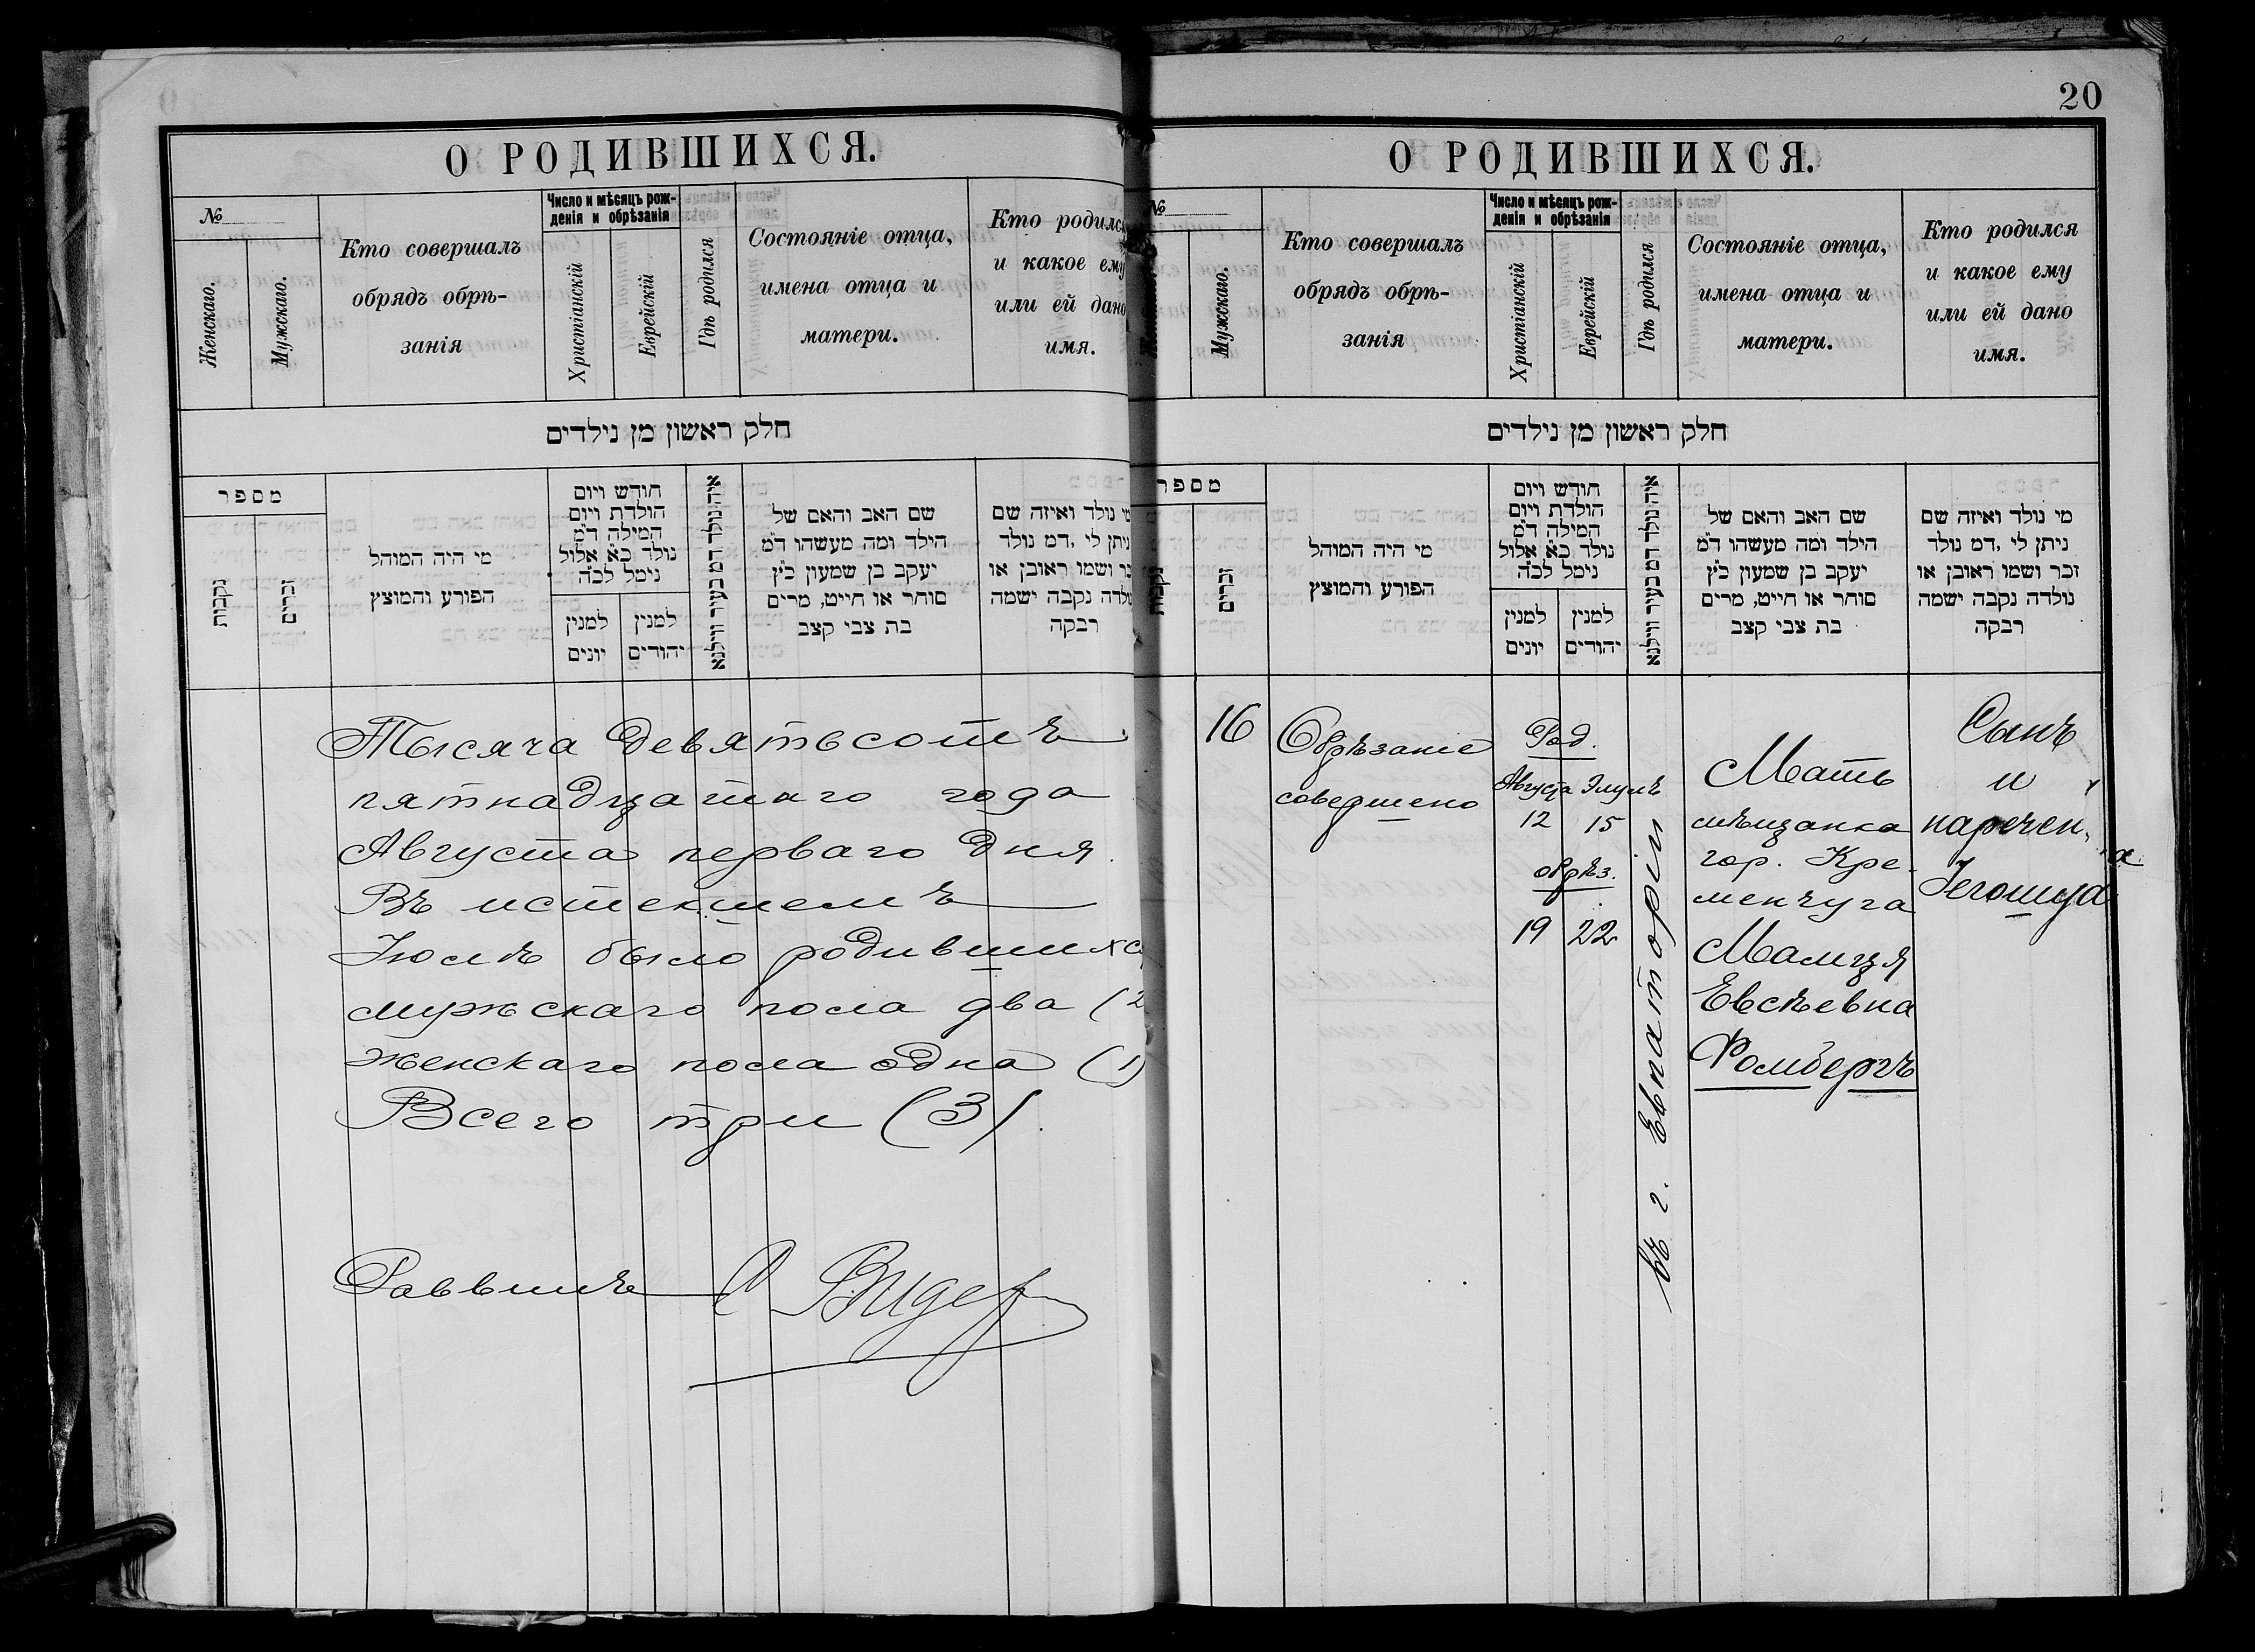 О РОДИВШИХСЯ.
№
Женскаго.
Мужскаго.
Кто совершалъ
обрядъ обрѣ-
занія
Число и мѣсяцъ рож-
денія и обрѣзанія
Христіанскій
Еврейскій
Гдѣ родился
Состояніе отца,
имена отца и
матери.
Кто родился
и какое ему
или ей дано
имя.
חלק ראשון מן נילדים
מספר
נקבות
זכרים
מי היה המוהל
הפורע והמוצץ
חודש ויום
הולדת ויום
המילה ד"מ
נולד כ"א אלול
נימל לכ"ה
למנין
יונים
למנין
יהודים
איה נולד דמ בעיר ווילנא
שם האב והאם של
הילד ומה מעשהו ד"מ
יעקב בן שמעון כ"ץ
סוחר או חייט, מרים
בת צבי קצב
מי נולד ואיזה שם
ניתן לי, דמ נולד
זכר ושמו ראובן או
נולדה נקבה ישמה
רבקה
Тысяча девятьсотъ
пятнадцатаго года
Августа перваго дня.
Въ истекшемъ
Іюлѣ было родившихся
мужскаго пола два (2
женскаго пола одна (1)
Всего три (3).
Раввинъ Видер
20
О РОДИВШИХСЯ.
№
Женскаго.
Мужскаго.
Кто совершалъ
обрядъ обрѣ-
занія
Число и мѣсяцъ рож-
денія и обрѣзанія
Христіанскій
Еврейскій
Гдѣ родился
Состояніе отца,
имена отца и
матери.
Кто родился
и какое ему
или ей дано
имя.
חלק ראשון מן נילדים
מספר
נקבות
זכרים
מי היה המוהל
הפורע והמוצץ
חודש ויום
הולדת ויום
המילה ד"מ
נולד כ"א אלול
נימל לכ"ה
למנין
יונים
למנין
יהודים
איה נולד דמ בעיר ווילנא
שם האב והאם של
הילד ומה מעשהו ד"מ
יעקב בן שמעון כ"ץ
סוחר או חייט, מרים
בת צבי קצב
מי נולד ואיזה שם
ניתן לי, דמ נולד
זכר ושמו ראובן או
נולדה נקבה ישמה
רבקה
16
Обрѣзаніе
совершено
Род.
Августа Элулъ
12 15
обрѣз.
19 22
въ г. Евпаторіи
Мать
мѣщанка
гор. Кре-
менчуга
Малця
Евсѣевна
Ромбергъ
Сынъ
и
наречен,
Іегошуа